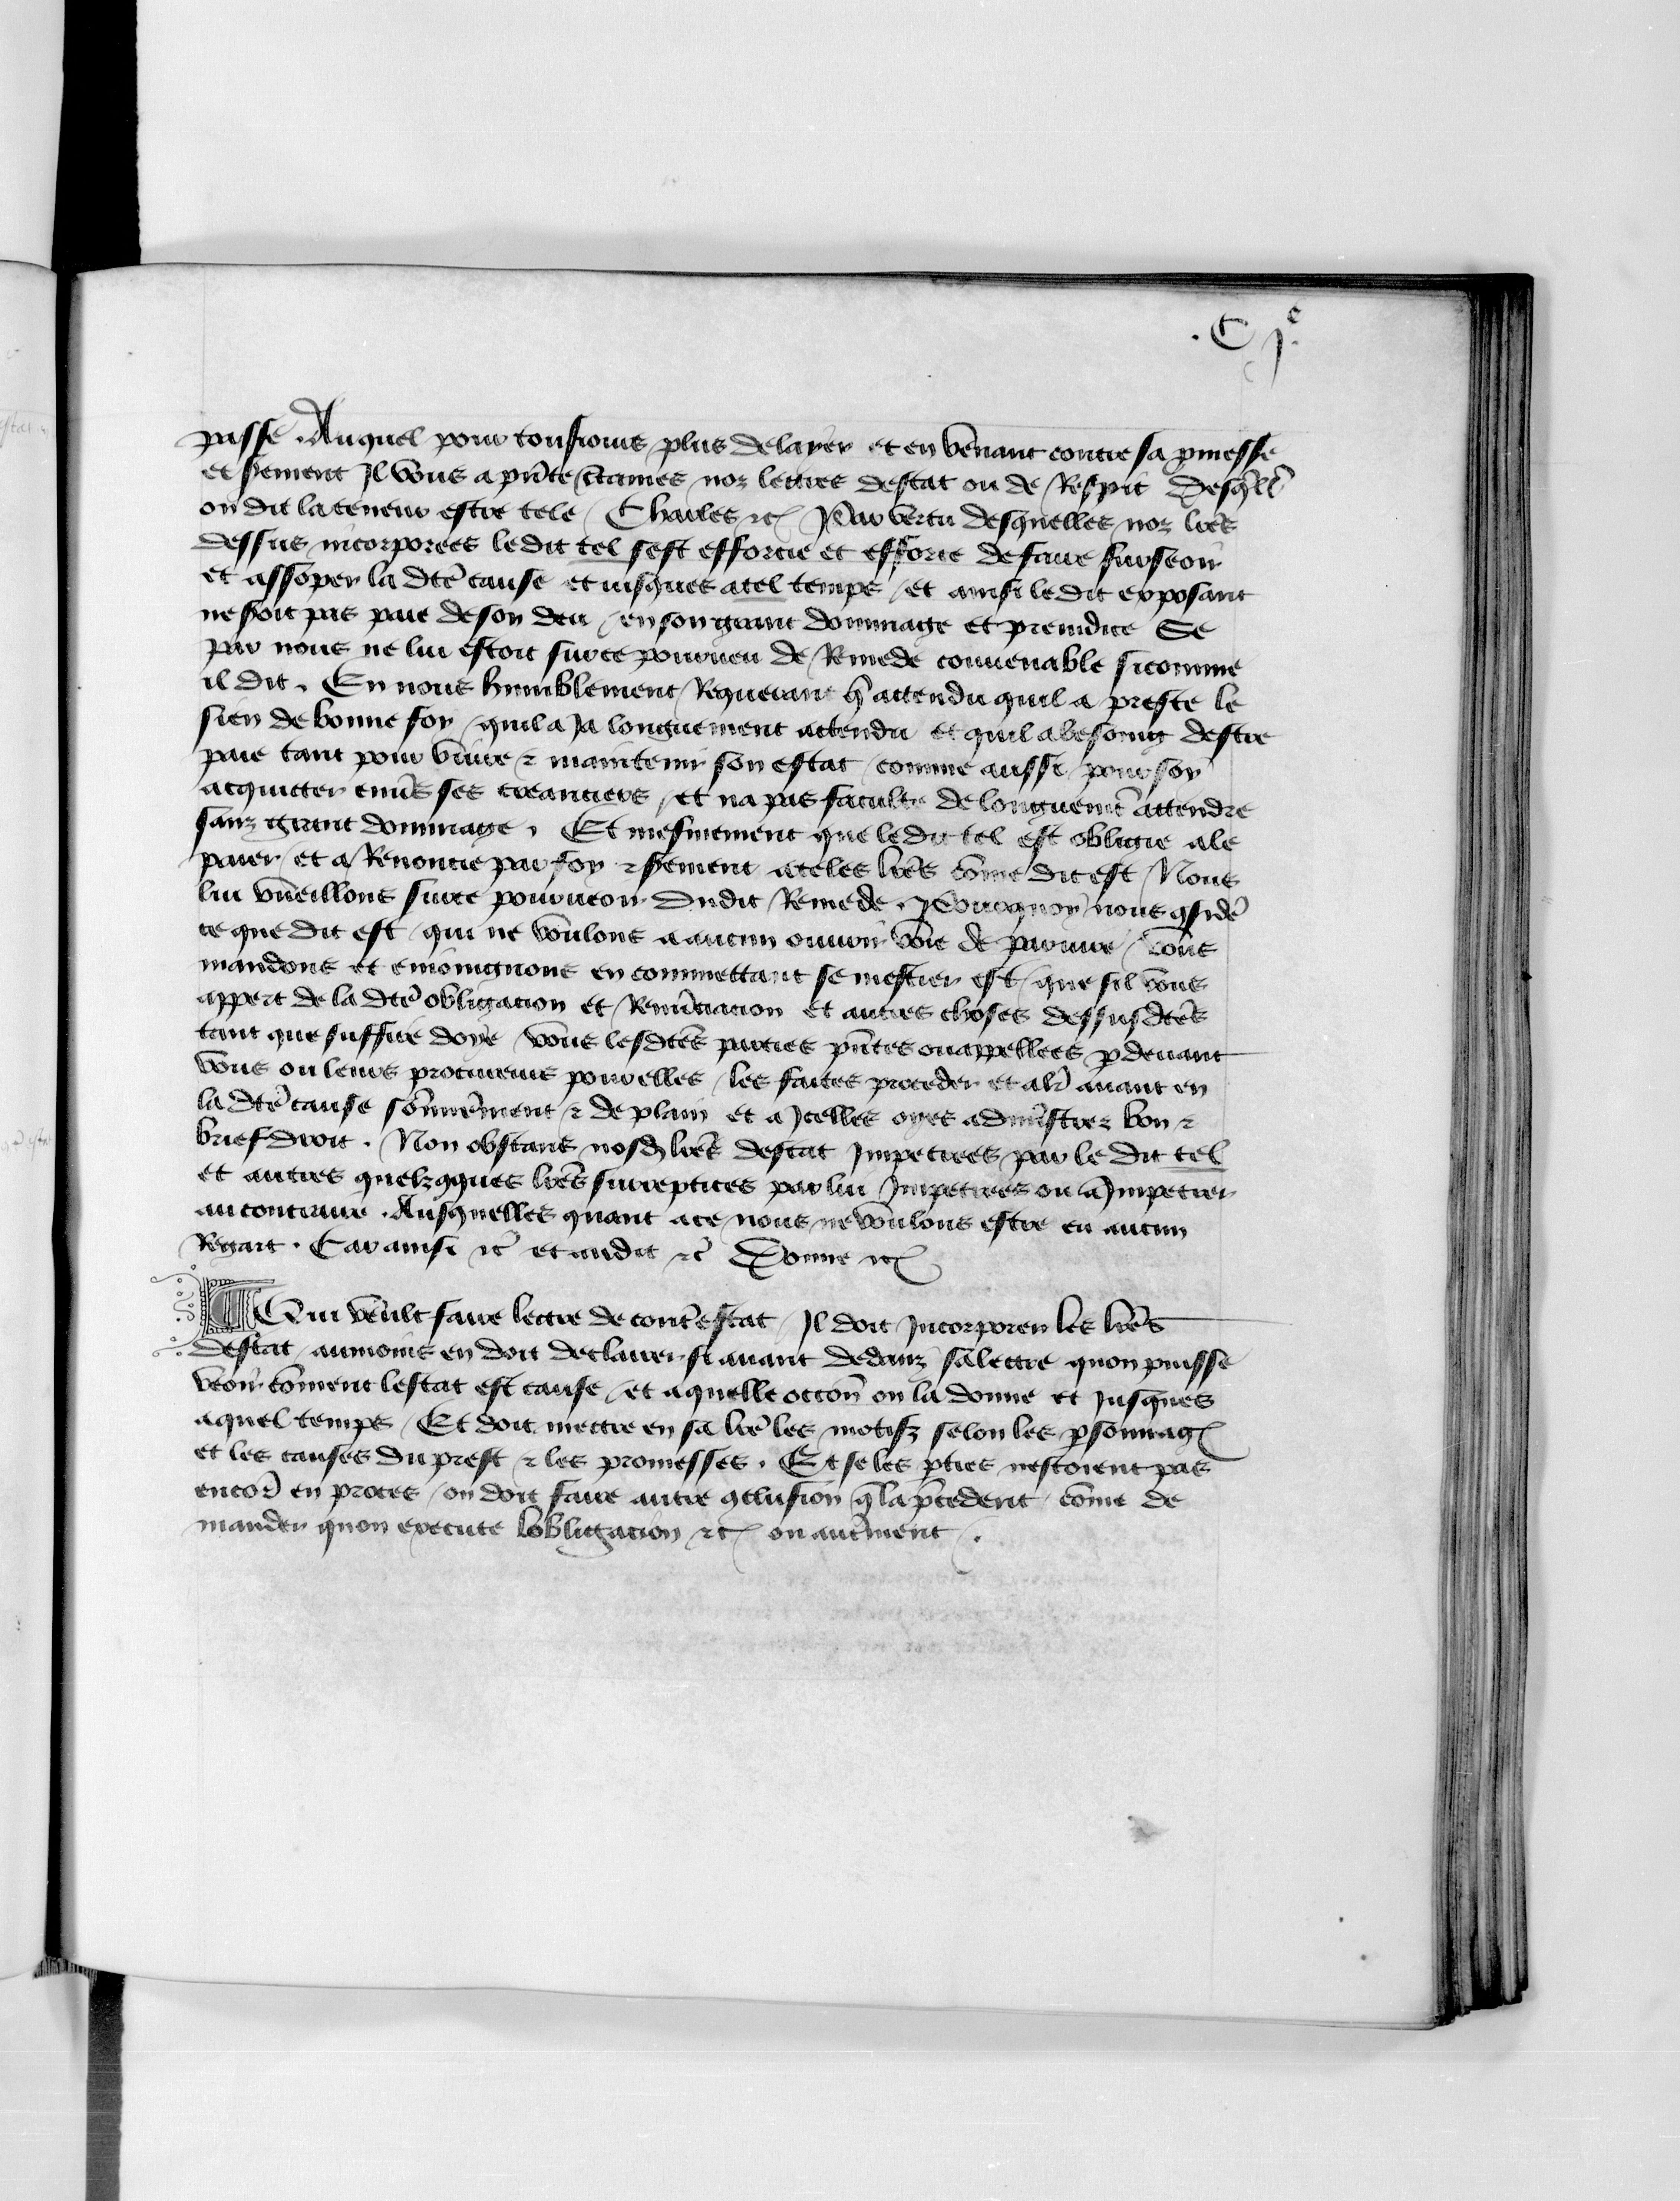 . C j.e
passe . Auquel pour tousiours plus delayer et en venant contre sa pmesse
et serement Il vous a pñte certaines noz lettres destat ou de Respit Desqlles
on dit la teneur estre tele / Charles etc Par vertu desquelles noz lrẽs
dessus incorporees ledit tel sest efforcie et efforce de faire surseoir
et assoper la dicẽ cause et iusques a tel temps / et ainsi le dit exposant
ne soit pas paie de son deu / en son grant dommage et preiudice Se
par nous ne lui estoit sur ce pourueu de Remede conuenable sicomme
il dit . En nous humblement Requerant q̃ attendu quil a preste le
sien de bonne foy / quil a Ja longuement attendu et quil a besoing destre
paie tant pour viure & maintenir son estat / comme aussi pour soy
acquitter enuẽs ses creanciers / et na pas faculte de longuemẽt attendre
sanz grant dommage . Et mesmement que le dit tel est obligie a le
paier / et a Renoncie par foy & serement a teles lrẽs cõme dit est / Nous
lui vueillons sur ce pourueoir dudit Remede . Pourquoy nous qsidẽ
ce que dit est / qui ne voulons a aucun ouurir voie de pariure / vous
mandons et enioingnons en commettant se mestier est / que sil vous
appert de la dictẽ obligacion et Renũciacion et autres choses dessusdictẽs
tant que suffire doye / vous lesdictẽs parties pñtes ou appellees p deuant
vous ou leurs procureurs pour elles / les faites proceder et alẽr auant en
la dictẽ cause sõmerẽment & de plain et a Jcelles oyes admĩstrez bon &
brief droit . Non obstans nosd lrẽs destat Jmpetrees par le dit tel
et autres quelzqques lrẽs surreptices par lui Jmpetrees ou a Jmpetrer
au contraire . Ausquelles quant a ce nous ne voulons estre eu aucun
Regart . Car ainsi etc̃ et audit etc̃ Donne etc
Qui veult faire lectre de contrẽ estat / Il doit Jncorporer les lrẽs
destat / aumoins en doit declairer si auant dedanz sa lectre quon puisse
veoir cõment lestat est cause / et a quelle occoñ on la donne et Jusques
a quel temps / Et doit mectre en sa lrẽ les motifz selon les psonnag
et les causes du prest & les promesses . Et se les pties nestoient pas
encorẽ en proces / on doit faire autre qclusion q̃ la pcedent / cõme de
mander quon execute lobligacion etc ou autrẽment .